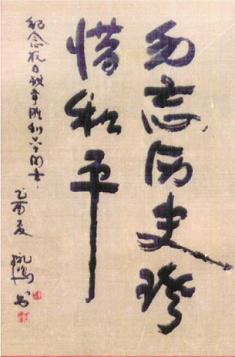 勿忘历史珍
惜和平
纪念抗日战争胜利六十周年
乙酉夏
书